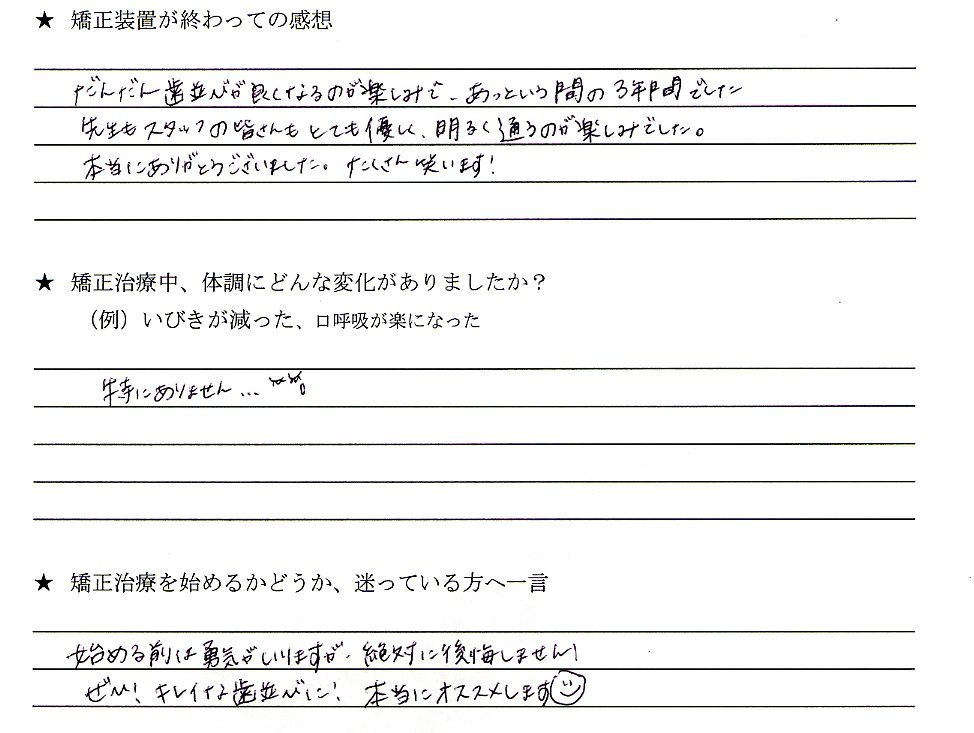 ★ 矯正装置が終わっての感想
だんだん歯並びが良くなるのが楽しみで、あっという間の3年間でした
先生もスタッフの皆さんもとても優しく、明るく通うのが楽しみでした。
本当にありがとうございました。たくさん笑います!
★ 矯正治療中、体調にどんな変化がありましたか？
（例）いびきが減った、口呼吸が楽になった
特にありません...
★ 矯正治療を始めるかどうか、迷っている方へ一言
始める前は勇気がいりますが、絶対に後悔しません!
ぜひ! キレイな歯並びに! 本当にオススメします